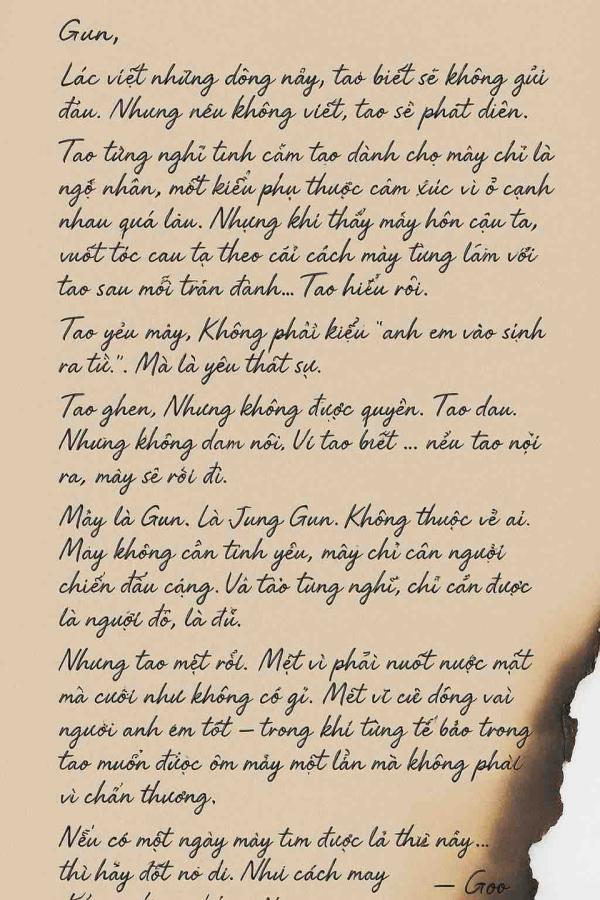 Gun,
Lác việt những dông nảy, tao biết sẽ không gửi
đâu. Nhưng nêu không viết, tao sẽ phát diên.
Tao từng nghĩ tình cảm tao dành chọ mây chỉ là
ngộ nhân, một kiểu phụ thuộc câm xúc vì ở cạnh
nhau quá lâu. Nhựng khi thấy mảy hôn cậu ta,
vuốt tóc cau tạ theo cái cách mày tùng lám với
tao sau mỗi trán đành... Tao hiểu rôi.
Tao yẻu mảy, Không phải kiểu "anh em vào sinh
ra tử.". Mà là yêu thât sự.
Tao ghen, Nhưng không được quyên. Tao dau.
Nhưng không dam nôi, Ví tao biết ... nểu tao nội
ra, mày sẽ rời đi.
Mảy là Gun. Là Jung Gun. Không thuộc vẻ ai.
Máy không cẩn tình yêu, mây chỉ cân người
chiến đấu cáng. Và tào từng nghĩ, chỉ cần được
là người đô, là đủ.
Nhưng tao mệt rổi. Mệt vì phải nuốt nước mặt
mà cười như không có gì. Mêt vĩ cứ dóng vai
người anh em tốt – trong khí từng tế bảo trong
tao muốn được ôm mảy một lần mà không phải
vì chấn thương.
Nếu có một ngày mày tìm được lả thư nảy...
thì hãy đốt nó di. Như cách may
— Goo